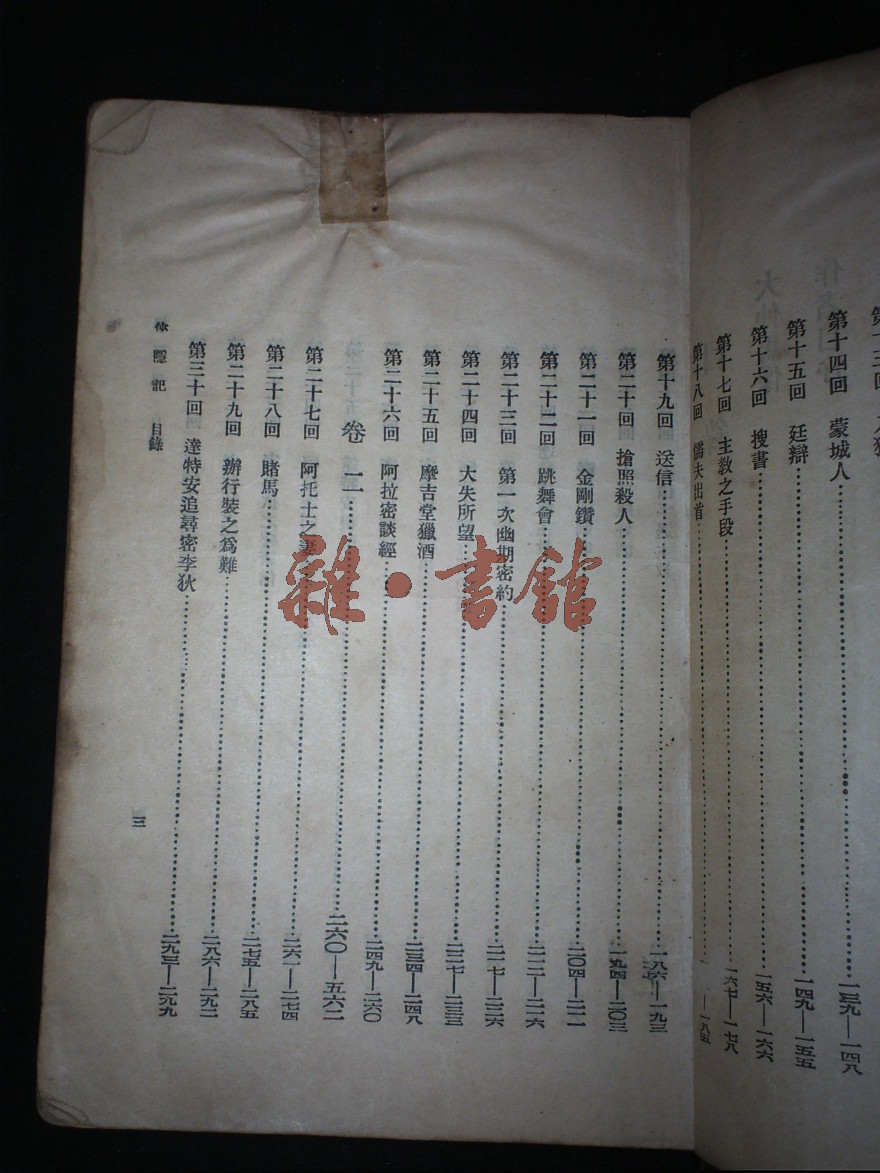 第十四回　蒙城人……一三九—一四八
第十五回　廷辯……一四九—一五五
第十六回　搜書……一五六—一六六
第十七回　主教之手段……一六七—一七八
第十八回　懦夫出首……—一八五
第十九回　送信……一八六—一九三
第二十回　搶照殺人……一九四—二〇三
第二十一回　金剛鑽……二〇四—二一一
第二十二回　跳舞會……二一二—二一六
第二十三回　第一次幽期密約……二一七—二二六
第二十四回　大失所望……二二七—二三三
第二十五回　摩吉堂獵酒……二三四—二四八
第二十六回　阿拉密談經……二四九—二六〇
卷二……二六〇—五六二
第二十七回　阿托士之妻……二六一—二七四
第二十八回　賭馬……二七五—二八五
第二十九回　辦行裝之爲難……二八六—二九二
第三十回　達特安追尋密李狄……二九三—二九九
隱記　目錄
三
雜·書館